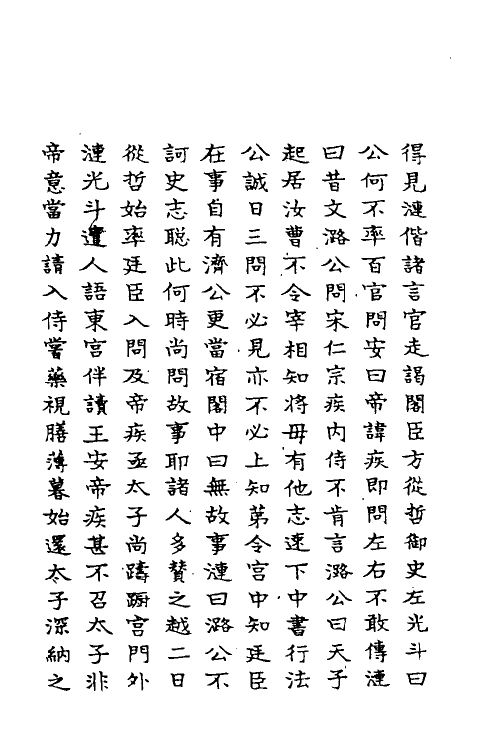 得見漣偕諸言官走謁閣臣方從哲御史左光斗曰
公何不率百官問安曰帝諱疾即問左右不敢傳漣
曰昔文潞公問宋仁宗疾内侍不肯言潞公曰天子
起居汝曹不令宰相知將毋有他志速下中書行法
公誠日三問不必見亦不必上知第令宮中知廷臣
在事自有濟公更當宿閣中曰無故事漣曰潞公不
訶史志聰此何時尚問故事耶諸人多贊之越二日
從哲始率廷臣入問及帝疾亟太子尚躊躕宮門外
漣光斗遣人語東宮伴讀王安帝疾甚不召太子非
帝意當力請入侍嘗藥視膳薄暮始還太子深納之